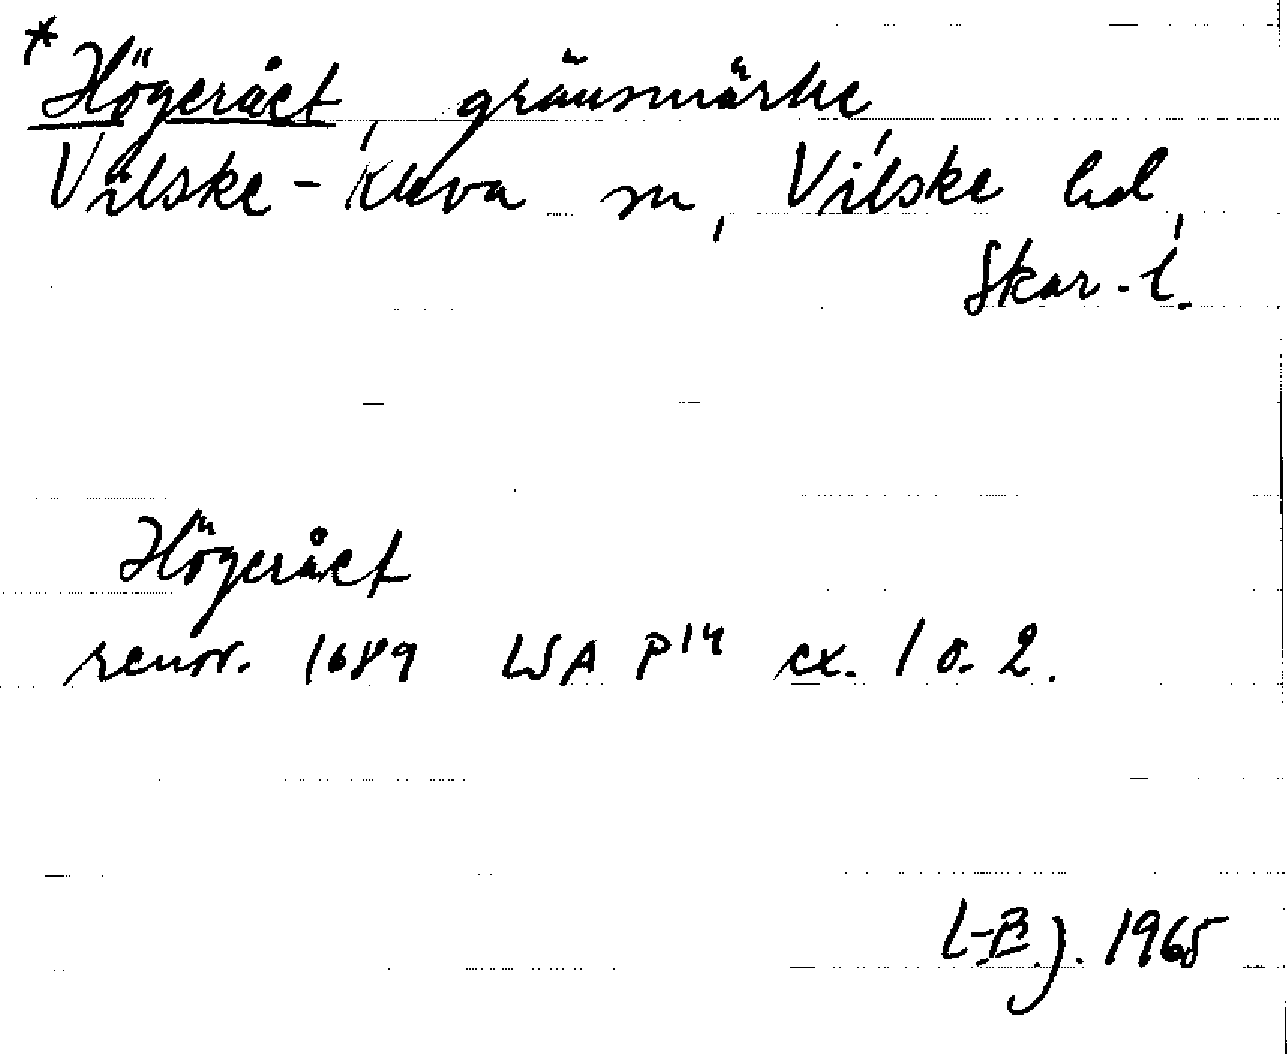 *Högeråct, gränsmärke
Vilske-Kleva sn, Vilske hd,
Skar.l.
Högeråct
renov. 1689 LSA P14 ex. 1 o. 2.
L-B.J. 1965